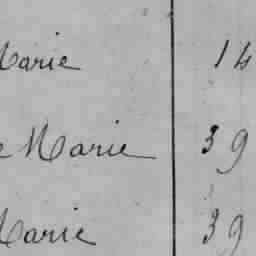 Marie 14
e Marie 39
Marie 39